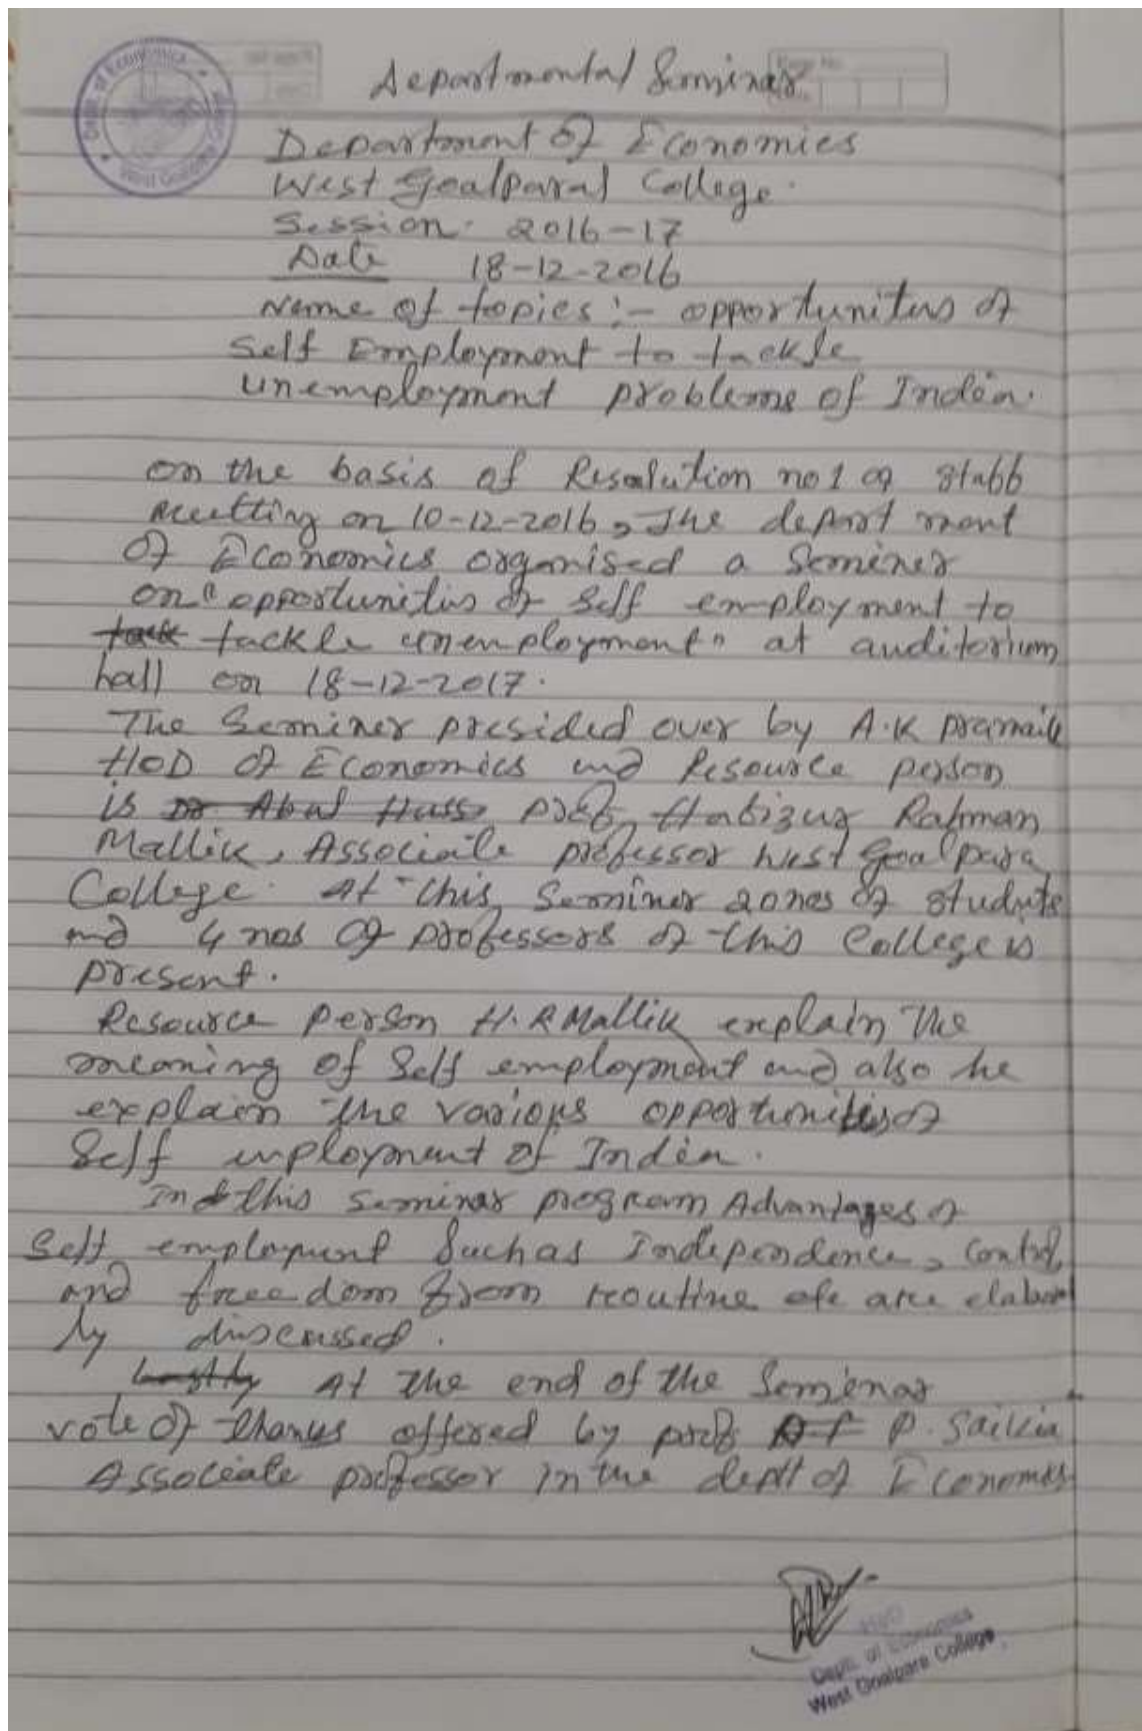 Departmental Seminar
Department of Economics
West Goalparal College.
Session. 2016-17
Date 18-12-2016
Name of topics :- opportunitus of
Self Employment to tackle
unemployment problems of India.
on the basis of Resolution no 1 of staff
meetting on 10-12-2016, The depart ment
of Economics organised a Seminer
on "opportunitis of Self employment to
tackle unemployment" at auditorium
hall on 18-12-2017.
The Seminer presided over by A.K pramaik
HOD of Economics and Resource person
is Dr Abul Huss prof. Habizur Rahman
Mallik, Associate professor West Goalpara
College. At this Seminer 20 nos of students
and 4 nos of professors of this College is
present.
Resource person H.R Mallik explain the
meaning of Self employment and also he
explain the various opportunities of
Self employment of India.
In this seminar program Advantages of
Self employment Such as Independence, Control,
and freedom from routine etc are elabor
ly discussed.
Lastly At the end of the Semienar
vote of thanks offered by prof P. Saikia
Associate professor in the deptt of Economics
HOD
Dept. of Economics
West Goalpara College
Dept. of Economics
West Goalpara College